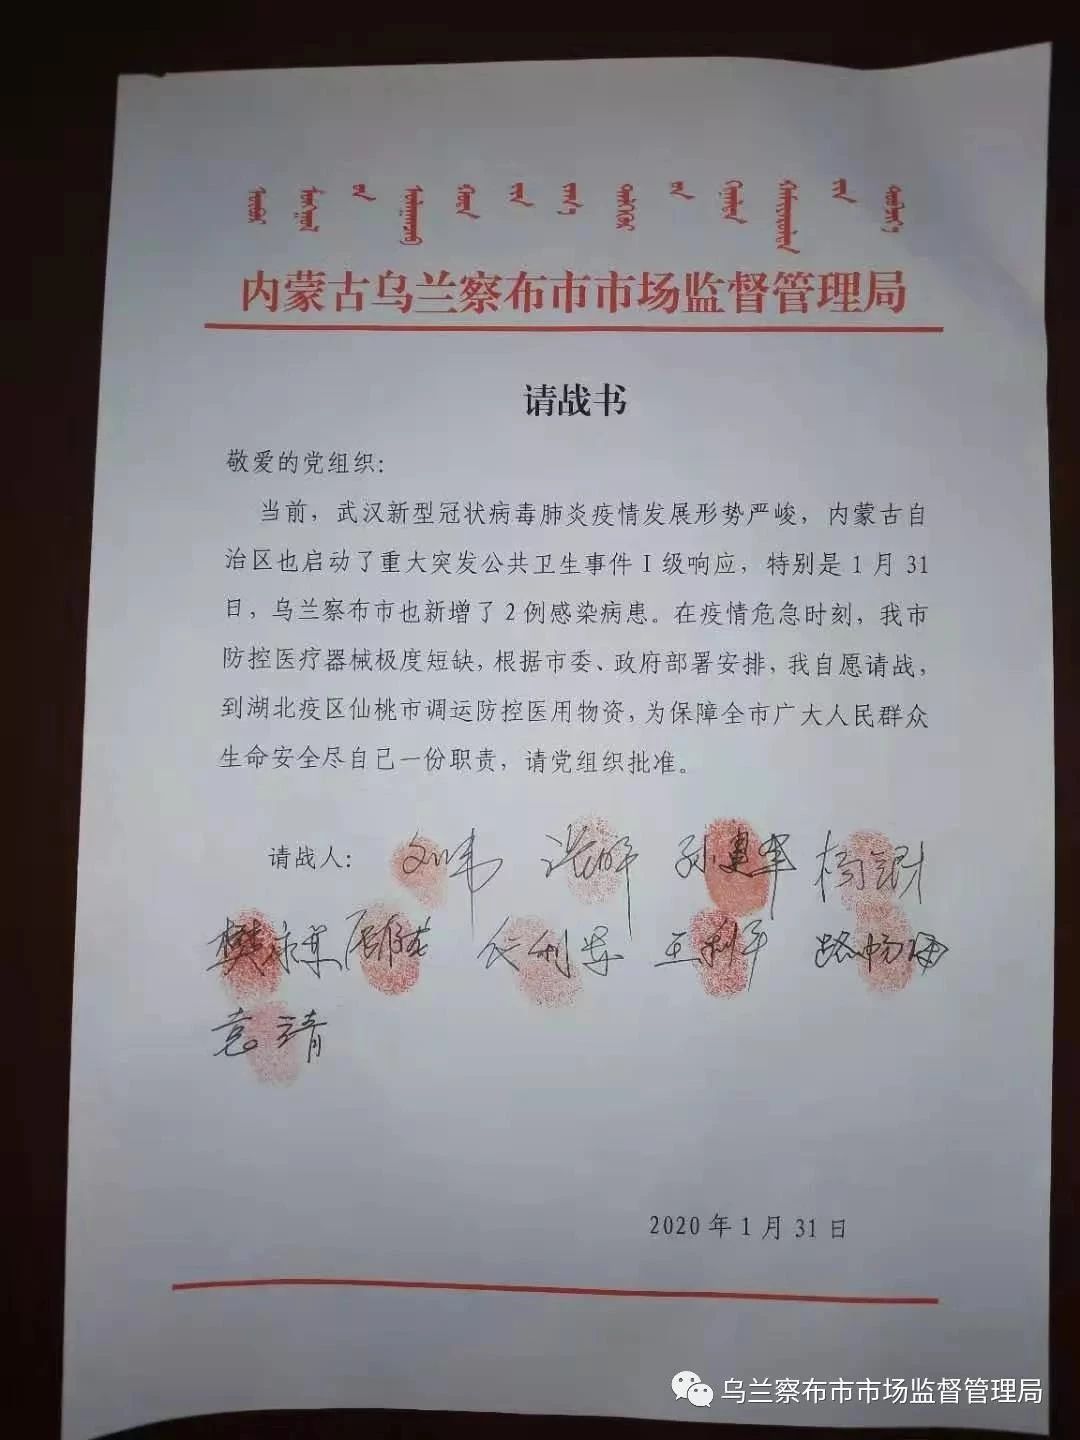 内蒙古乌兰察布市市场监督管理局
请战书
敬爱的党组织：
当前，武汉新型冠状病毒肺炎疫情发展形势严峻，内蒙古自
治区也启动了重大突发公共卫生事件 I 级响应，特别是 1 月 31
日，乌兰察布市也新增了 2 例感染病患。在疫情危急时刻，我市
防控医疗器械极度短缺，根据市委、政府部署安排，我自愿请战，
到湖北疫区仙桃市调运防控医用物资，为保障全市广大人民群众
生命安全尽自己一份职责，请党组织批准。
请战人： 孙建军
王利平
袁靖
2020 年 1 月 31 日
乌兰察布市市场监督管理局